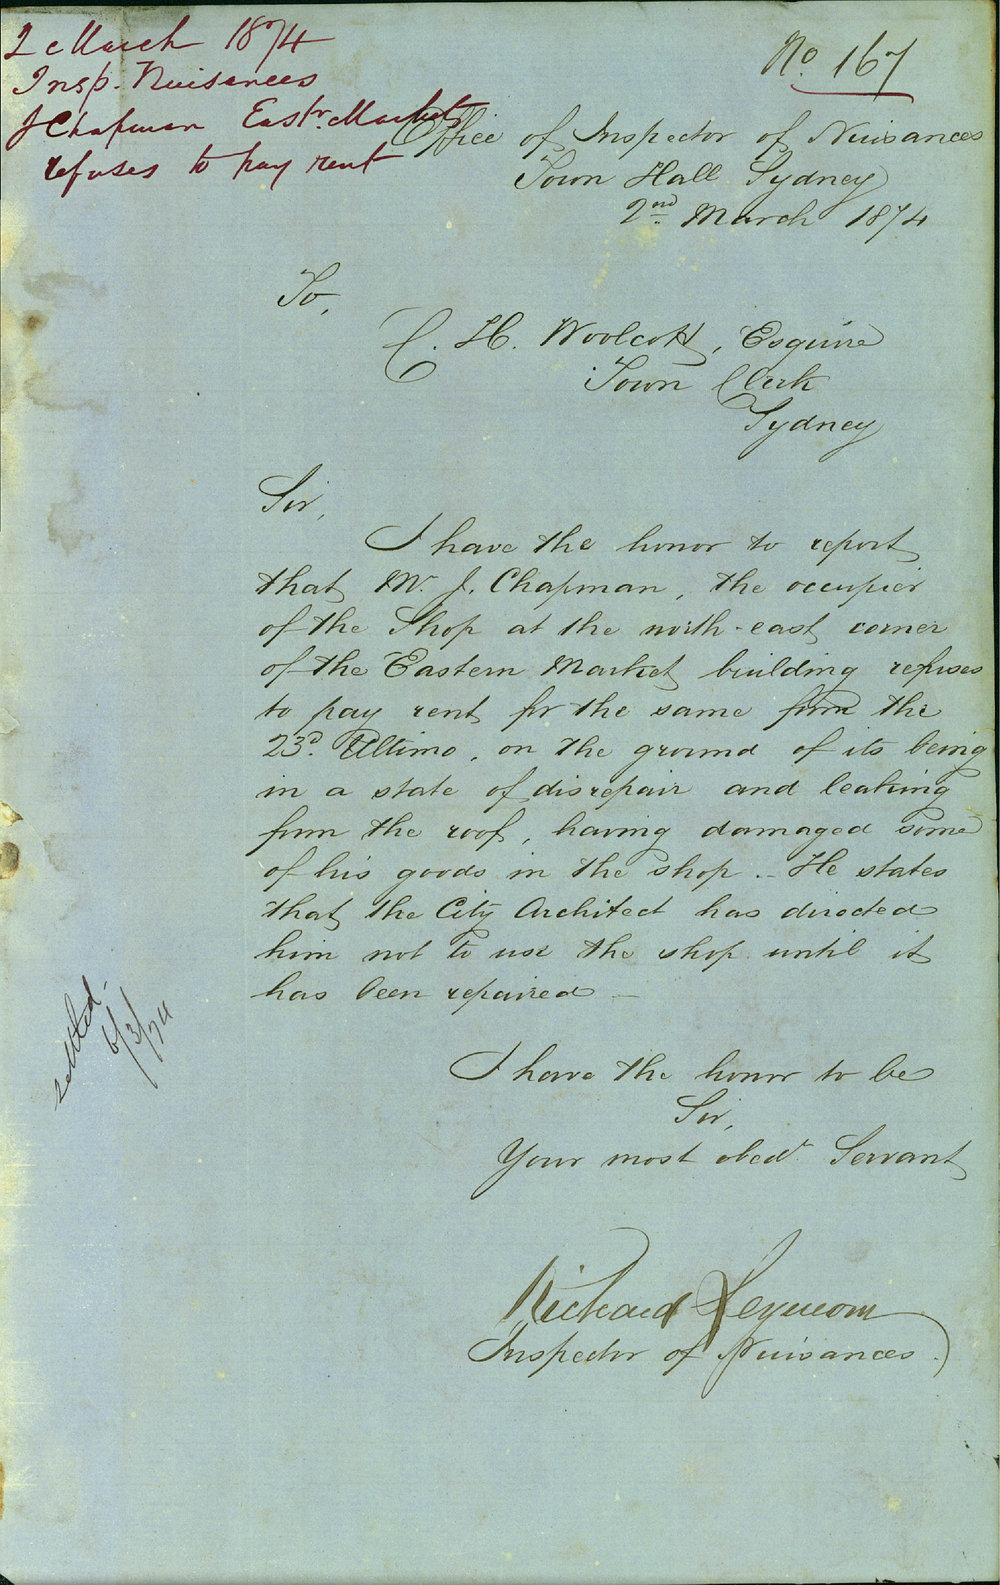 2 March 1874
Insp. Nuisances
J Chapman Eastn. Markets
refuses to pay rent
No. 167
Office of Inspector of Nuisances
Town Hall Sydney
2nd March 1874
To,
C. H. Woolcott, Esquire
Town Clerk
Sydney
Sir,
I have the honor to report
that Mr. J. Chapman, the occupier
of the Shop at the north-east corner
of the Eastern Market building refuses
to pay rent for the same from the
23d. Ultimo, on the ground of its being
in a state of disrepair and leaking
from the roof, having damaged some
of his goods in the shop. - He states
that the City Architect has directed
him not to use the shop until it
has been repaired -
settled.
6/3/74
I have the honor to be
Sir,
Your most obedt. Servant
Richard Seymour
Inspector of Nuisances.